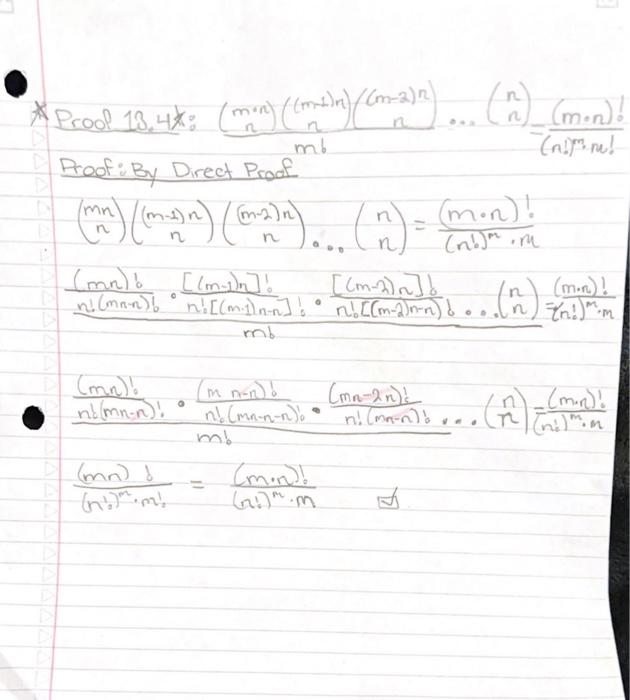 * Proof 13.4*: \frac{\binom{m \cdot n}{n} \binom{(m-1)n}{n} \binom{(m-2)n}{n} \cdots \binom{n}{n}}{m!} = \frac{(m \cdot n)!}{(n!)^m \cdot m!}
Proof: By Direct Proof
\binom{mn}{n} \binom{(m-1)n}{n} \binom{(m-2)n}{n} \cdots \binom{n}{n} = \frac{(m \cdot n)!}{(n!)^m \cdot m}
\frac{\frac{(mn)!}{n!(mn-n)!} \cdot \frac{[(m-1)n]!}{n![(m-1)n-n]!} \cdot \frac{[(m-2)n]!}{n![(m-2)n-n)!} \cdots \binom{n}{n}}{m!} = \frac{(m \cdot n)!}{(n!)^m \cdot m}
\frac{\frac{(mn)!}{n!(mn-n)!} \cdot \frac{(mn-n)!}{n!(mn-n-n)!} \cdot \frac{(mn-2n)!}{n!(mn-n)!} \cdots \binom{n}{n}}{m!} = \frac{(m \cdot n)!}{(n!)^m \cdot m}
\frac{(mn)!}{(n!)^m \cdot m!} = \frac{(m \cdot n)!}{(n!)^m \cdot m} ☑